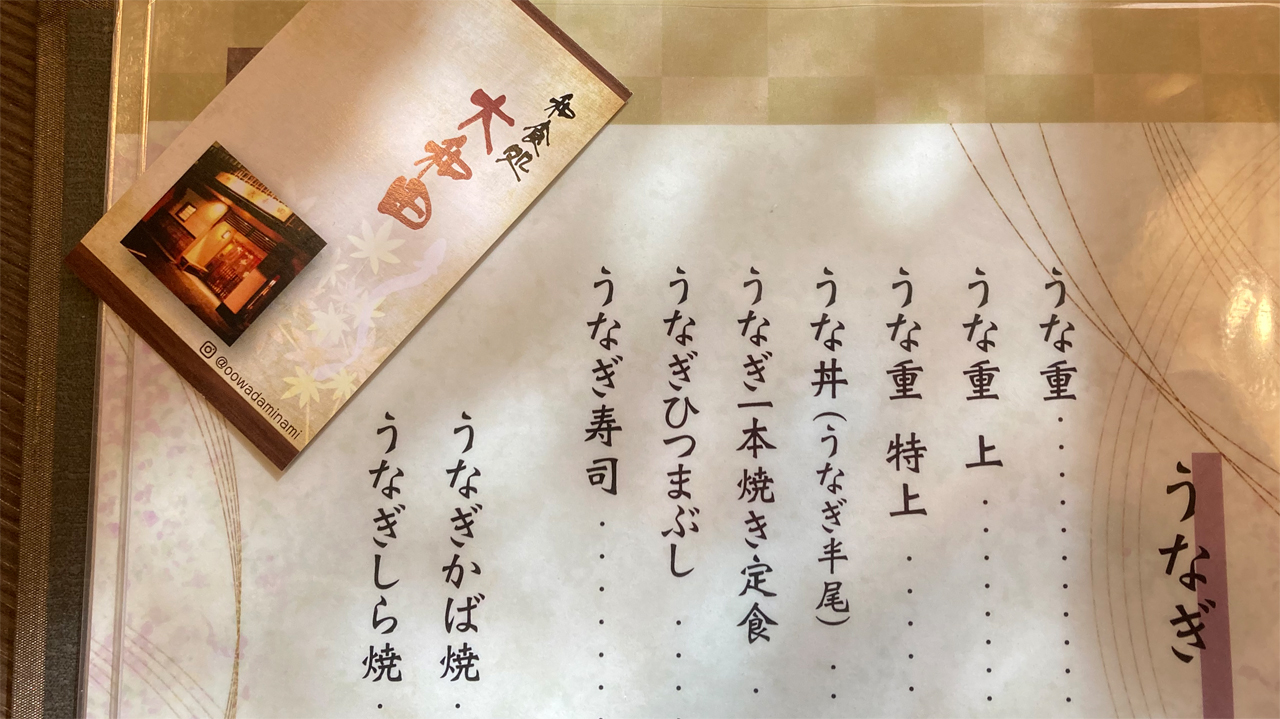 うなぎ
うな重
うな重 上
うな重 特上
うな丼(うなぎ半尾)
うなぎ一本焼き定食
うなぎひつまぶし
うなぎ寿司
うなぎかば焼
うなぎしら焼
和食処
大和田
@oowadaminami